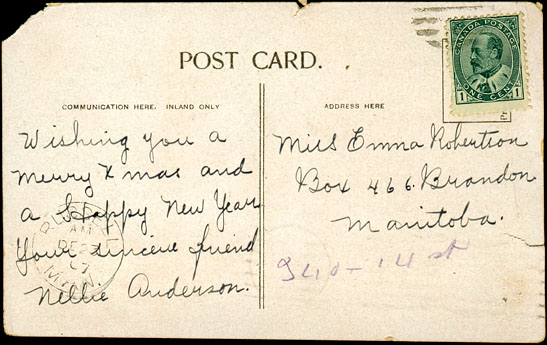 POST CARD.
COMMUNICATION HERE, INLAND ONLY
Wishing you a
Merry Xmas and
a Happy New Year
Your sincere friend
Nellie Anderson.
ADDRESS HERE
Miss Emma Robertson
Box 466. Brandon
Manitoba.
14 st
CANADA POSTAGE
1 ONE CENT 1
AM
DE 23
07
MAN.